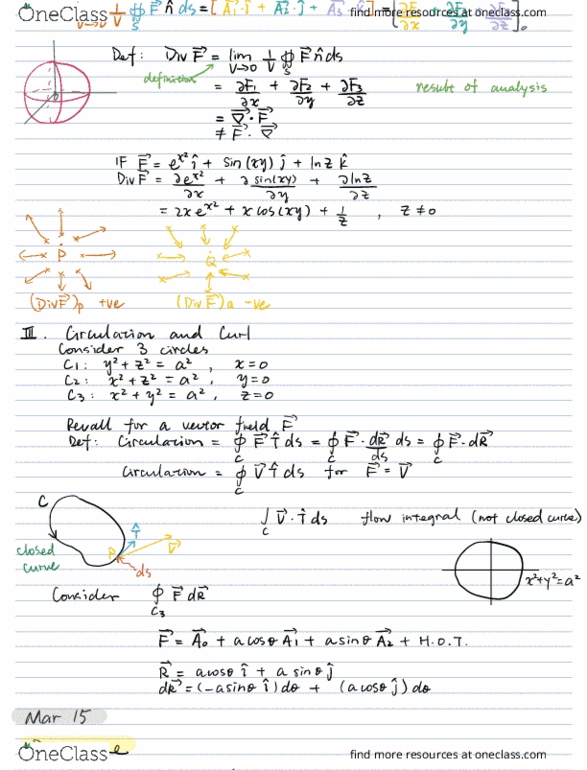 lim V→0 1/V ∯ F⃗ n̂ ds = [A⃗₁·î + A⃗₂·ĵ + A⃗₃ find more resources at oneclass.com
Def: Div F⃗ = lim V→0 1/V ∯_S F⃗ n̂ ds
definition
= ∂F₁/∂x + ∂F₂/∂y + ∂F₃/∂z result of analysis
= ∇⃗·F⃗
≠ F⃗·∇⃗
IF F⃗ = e^(x²) î + sin(xy) ĵ + ln z k̂
Div F⃗ = ∂e^(x²)/∂x + ∂ sin(xy)/∂y + ∂ ln z/∂z
= 2x e^(x²) + x cos(xy) + 1/z , z ≠ 0
P Q
(Div F⃗)p +ve (Div F⃗)Q -ve
III. Circulation and Curl
Consider 3 circles
C1: y² + z² = a² , x=0
C2: x² + z² = a² , y=0
C3: x² + y² = a² , z=0
Recall for a vector field F⃗
Def: Circulation = ∮_C F⃗ T̂ ds = ∮_C F⃗ · dR⃗/ds ds = ∮_C F⃗·dR⃗
Circulation = ∮_C V⃗ T̂ ds for F⃗ = V⃗
C
∫_C V⃗·T̂ ds flow integral (not closed curve)
closed curve P T̂ V⃗ ds
x²+y²=a²
Consider ∮_C3 F⃗ dR⃗
F⃗ = A⃗₀ + a cosθ A⃗₁ + a sinθ A⃗₂ + H.O.T.
R⃗ = a cosθ î + a sinθ ĵ
dR⃗ = (-a sinθ î) dθ + (a cosθ ĵ) dθ
Mar 15
OneClass find more resources at oneclass.com